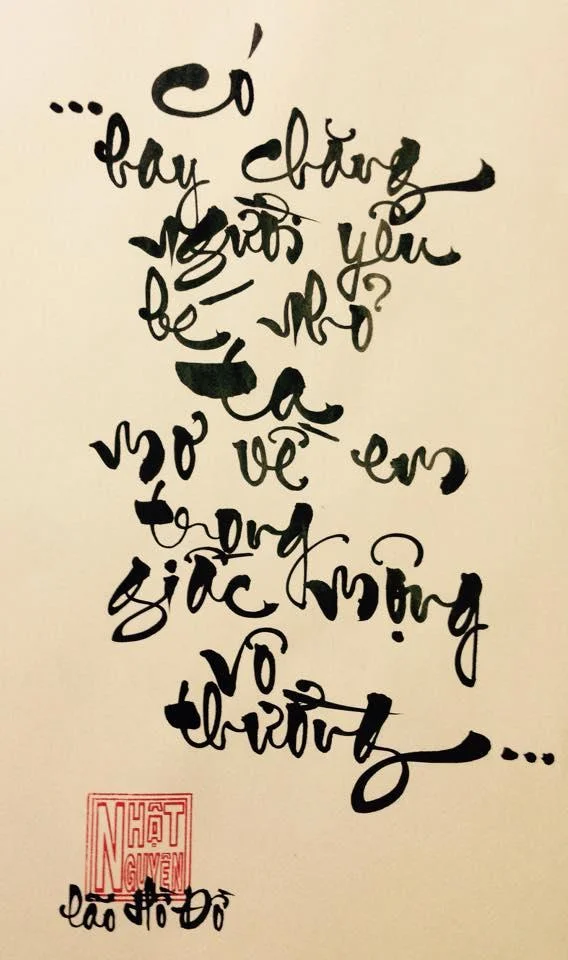 ... Có
hay chăng
người yêu
bé nhỏ
ta
mơ về em
trong
giấc mộng
vô
thường ...
NHẬT
NGUYÊN
lão Hồ Đồ